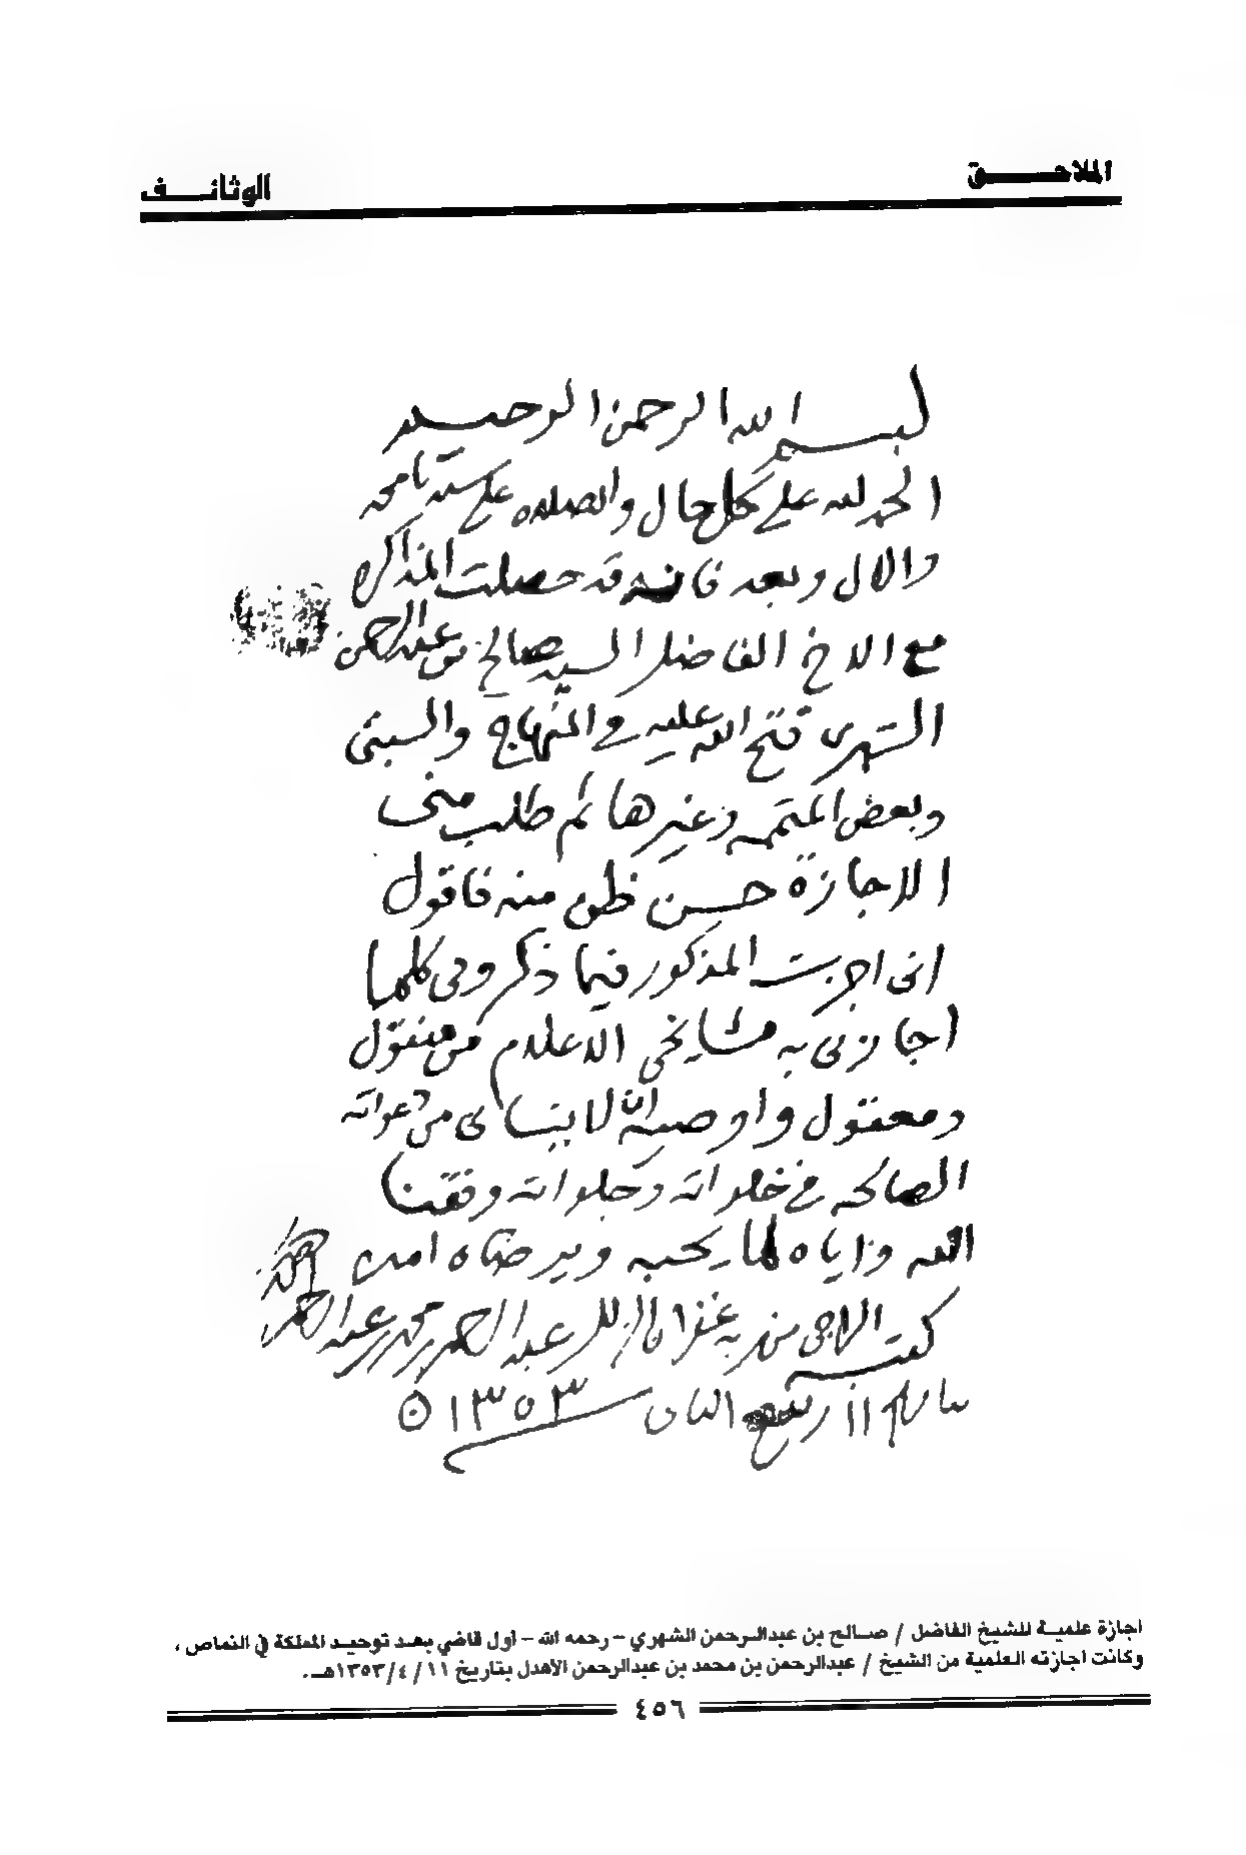 الملاحق
الوثائف
لبسم الله الرحمن الرحيم
الحمد لله على كل حال والصلاه على سيدنا محمد
والال وبعد فانه قد حصلت المذاكره
مع الاخ الفاضل السيد صالح بن عبدالرحمن
الشهرى فتح الله عليه في المنهاج والسبتى
وبعض المتممه وغيرها ثم طلب منى
الاجازة حسن ظن منه فاقول
انى اجزت المذكور فيما ذكر وفى كلما
اجازنى به مشايخى الاعلام من منقول
ومعقول واوصيه ان لا ينسانى من دعواته
الصالحه في خلواته وجلواته وفقنا
الله واياه لما يحبه ويرضاه امين
كتبه الراجى من ربه غفران الزلل عبد الرحمن بن محمد بن عبد الرحمن الاهدل
بتاريخ ١١ ربيع الثانى ١٣٥٣
اجازة علمية للشيخ الفاضل / صالح بن عبدالرحمن الشهري - رحمه الله - أول قاضي بعد توحيد المملكة في النماص ،
وكانت اجازته العلمية من الشيخ / عبدالرحمن بن محمد بن عبدالرحمن الأهدل بتاريخ ١١ / ٤ / ١٣٥٣هـ .
٤٥٦